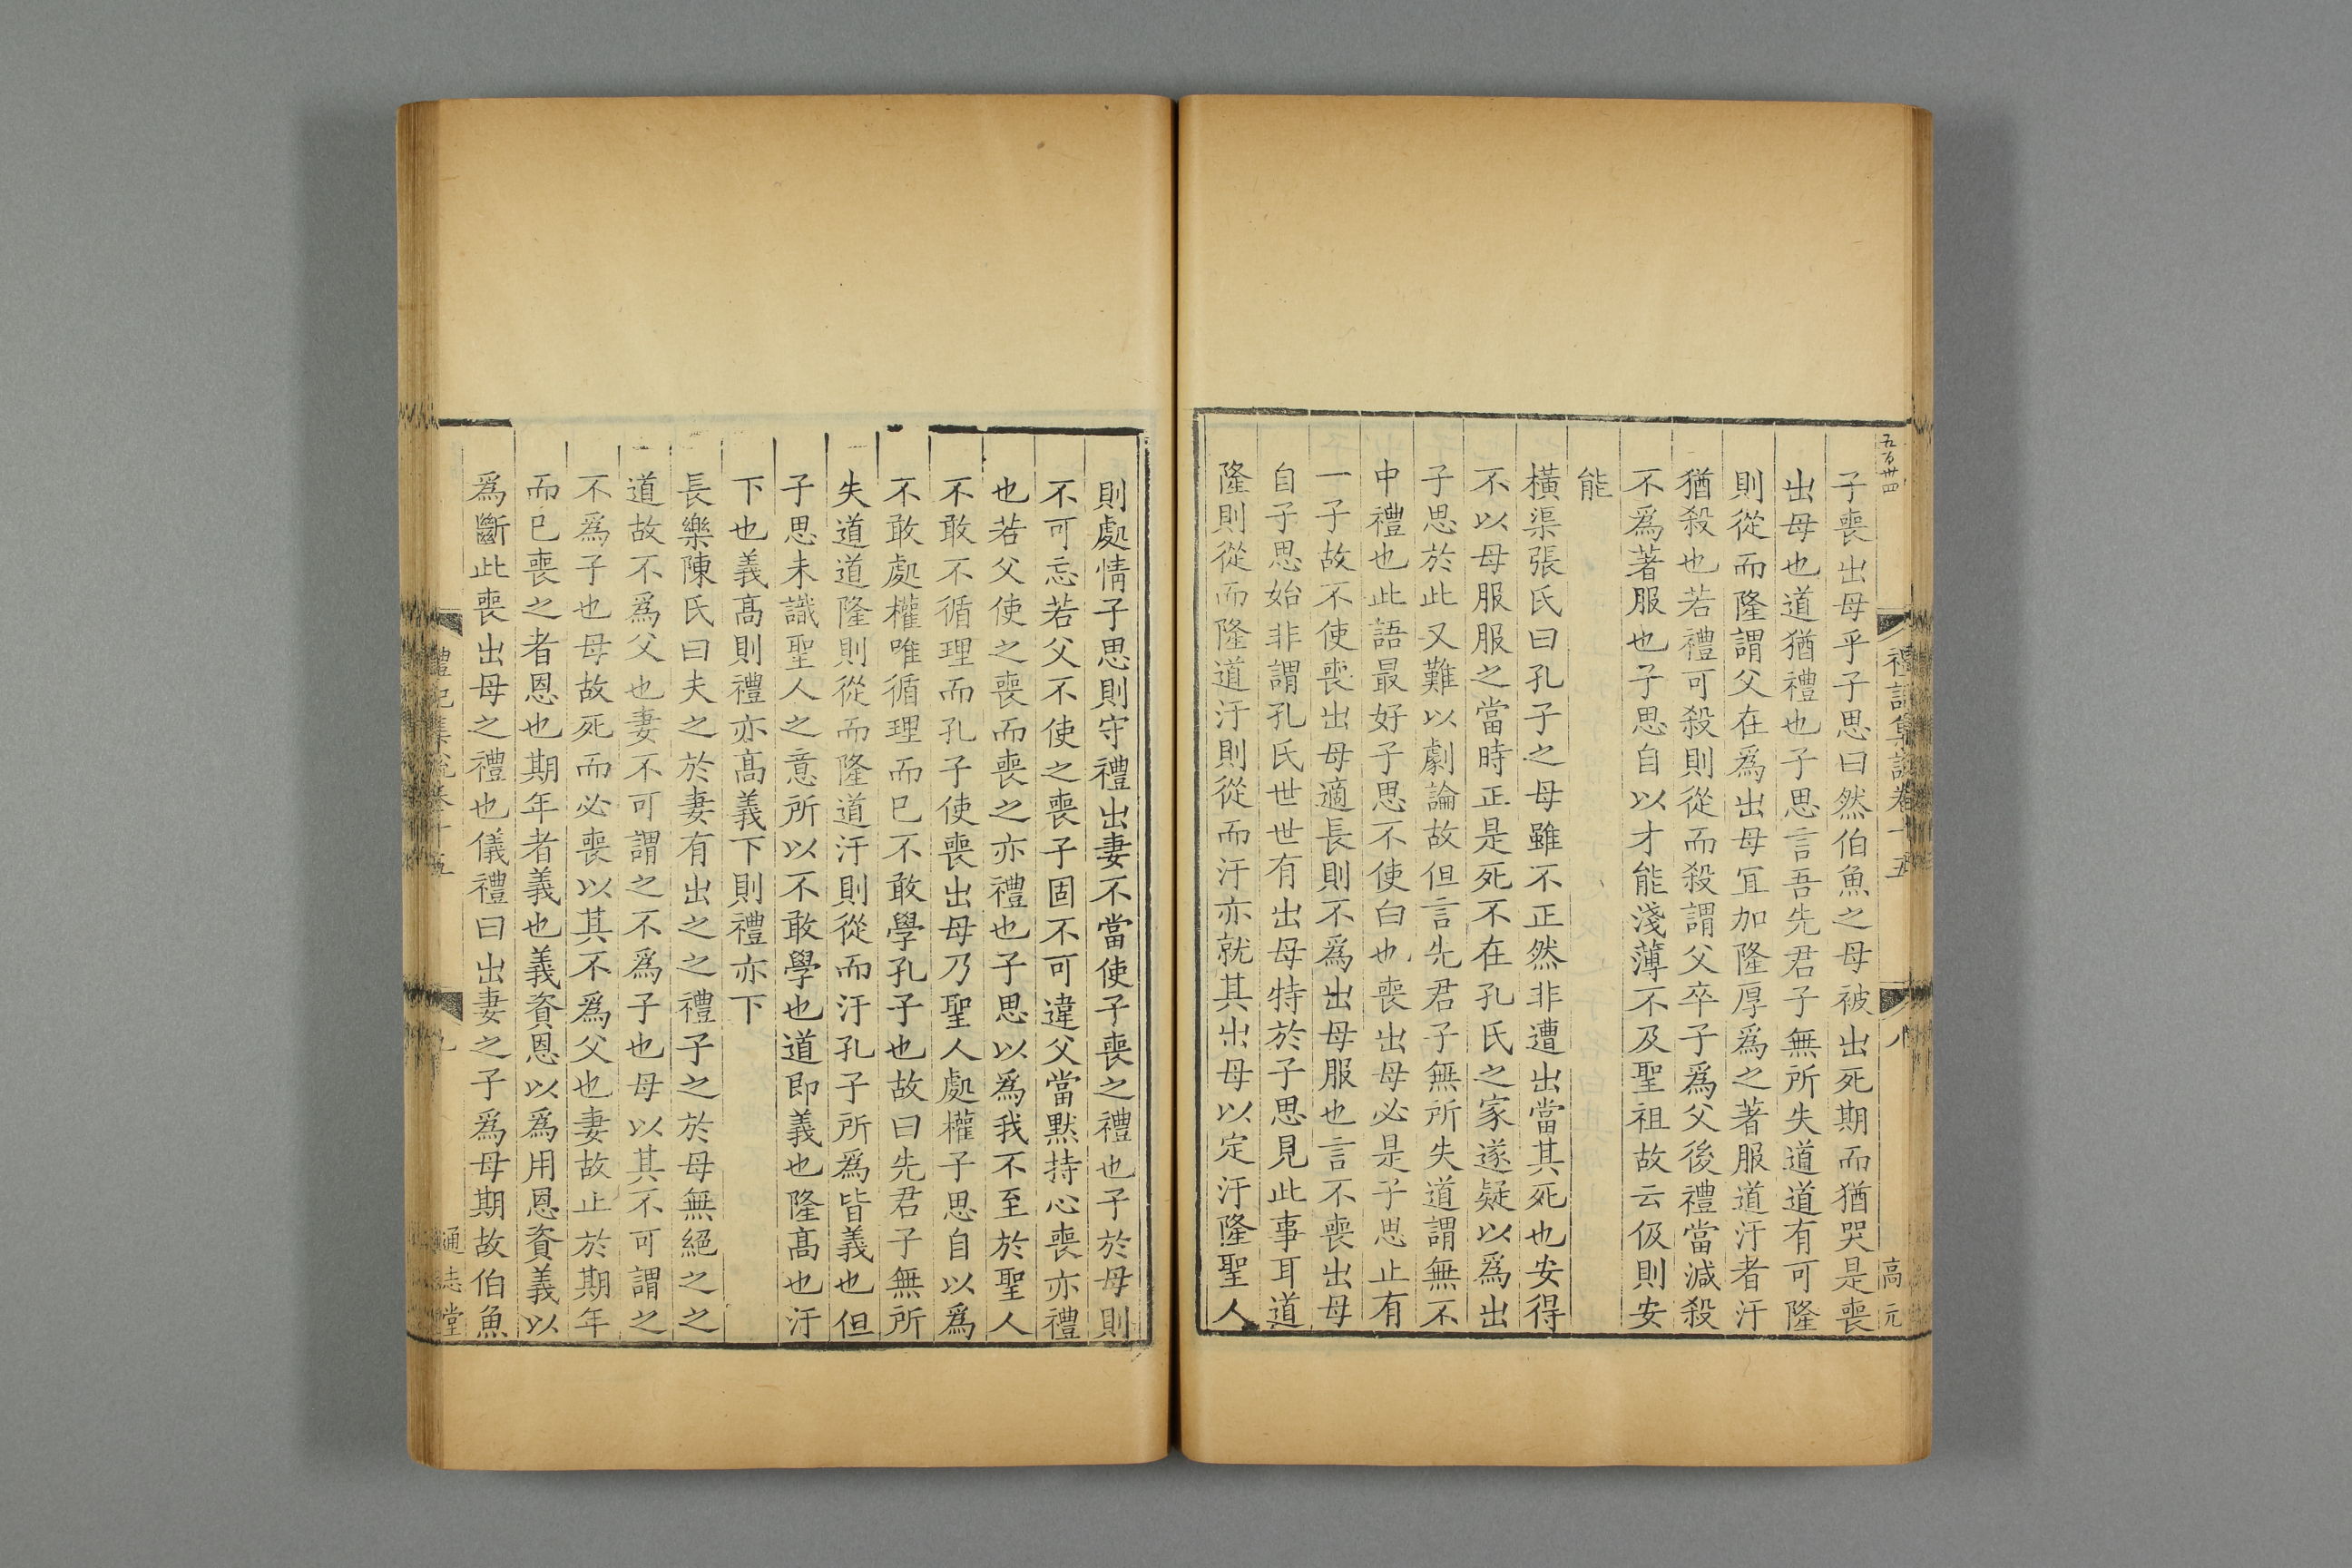 五百卅四
禮記集說卷十五
八
高元
子喪出母乎子思曰然伯魚之母被出死期而猶哭是喪
出母也道猶禮也子思言吾先君子無所失道道有可隆
則從而隆謂父在為出母宜加隆厚爲之著服道汙者汙
猶殺也若禮可殺則從而殺謂父卒子爲父後禮當減殺
不爲著服也子思自以才能淺薄不及聖祖故云伋則安
能
橫渠張氏曰孔子之母雖不正然非遭出當其死也安得
不以母服服之當時正是死不在孔氏之家遂疑以爲出
子思於此又難以劇論故但言先君子無所失道謂無不
中禮也此語最好子思不使白也喪出母必是子思止有
一子故不使喪出母適長則不爲出母服也言不喪出母
自子思始非謂孔氏世世有出母特於子思見此事耳道
隆則從而隆道汙則從而汙亦就其出母以定汙隆聖人
則處情子思則守禮出妻不當使子喪之禮也子於母則
不可忘若父不使之喪子固不可違父當默持心喪亦禮
也若父使之喪而喪之亦禮也子思以爲我不至於聖人
不敢不循理而孔子使喪出母乃聖人處權子思自以爲
不敢處權唯循理而已不敢學孔子也故曰先君子無所
失道道隆則從而隆道汙則從而汙孔子所爲皆義也但
子思未識聖人之意所以不敢學也道即義也隆髙也汙
下也義髙則禮亦髙義下則禮亦下
長樂陳氏曰夫之於妻有出之之禮子之於母無絕之之
道故不爲父也妻不可謂之不爲子也母以其不可謂之
不爲子也母故死而必喪以其不爲父也妻故止於期年
而已喪之者恩也期年者義也義資恩以爲用恩資義以
爲斷此喪出母之禮也儀禮曰出妻之子爲母期故伯魚
禮記集說卷十五
九
通志堂